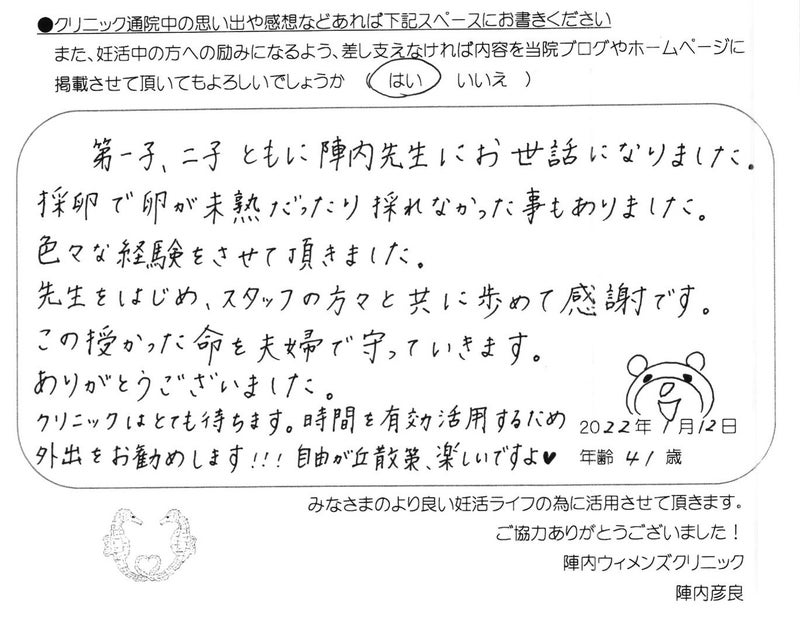 ●クリニック通院中の思い出や感想などあれば下記スペースにお書きください
また、妊活中の方への励みになるよう、差し支えなければ内容を当院ブログやホームページに
掲載させて頂いてもよろしいでしょうか （ はい いいえ ）
第一子、二子 ともに陣内先生にお世話になりました。
採卵で卵が未熟だったり採れなかった事もありました。
色々な経験をさせて頂きました。
先生をはじめ、スタッフの方々と共に歩めて感謝です。
この授かった命を夫婦で守っていきます。
ありがとうございました。
クリニックはとても待ちます。時間を有効活用するため
外出をお勧めします!!! 自由が丘散策、楽しいですよ♥
2022年 1月12日
年齢 41 歳
みなさまのより良い妊活ライフの為に活用させて頂きます。
ご協力ありがとうございました！
陣内ウィメンズクリニック
陣内彦良